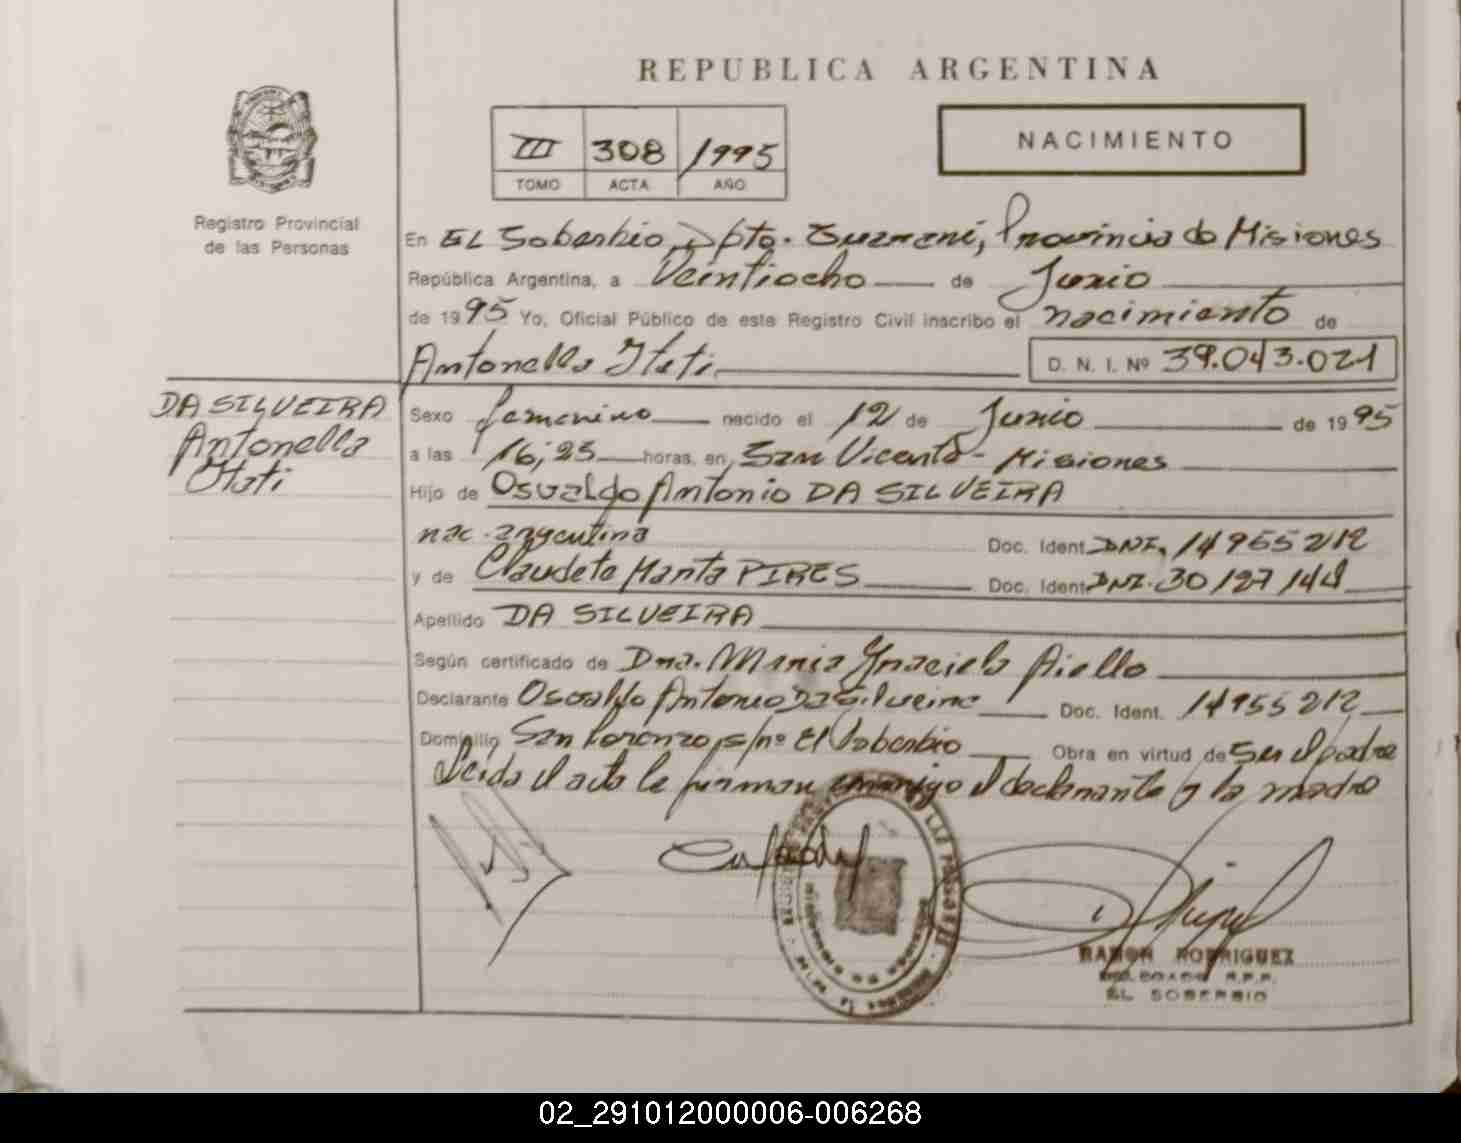 REPUBLICA ARGENTINA
III 308 1995
TOMO ACTA AÑO
NACIMIENTO
Registro Provincial
de las Personas
En EL Soberbio, Dpto. Guaraní, Provincia de Misiones
República Argentina, a Veintiocho de Junio
de 1995 Yo, Oficial Público de este Registro Civil inscribo el nacimiento de
Antonella Itati
D. N. I. Nº 39.043.021
DA SILVEIRA
Antonella
Itati
Sexo femenino nacido el 12 de Junio de 1995
a las 16,25 horas, en San Vicente - Misiones
Hijo de Osvaldo Antonio DA SILVEIRA
nac. argentina Doc. Ident. DNI. 14955212
y de Claudete Marta PIRES Doc. Ident. DNI. 30127148
Apellido DA SILVEIRA
Según certificado de Dra. María Graciela Aiello
Declarante Osvaldo Antonio Da Silveira Doc. Ident. 14955212
Domicilio San Lorenzo, s/nº El Soberbio Obra en virtud de Ser el padre
Leida el acta la firman conmigo el declarante y la madre
RAMON RODRIGUEZ
DELEGADO R.P.P.
EL SOBERBIO
02_291012000006-006268